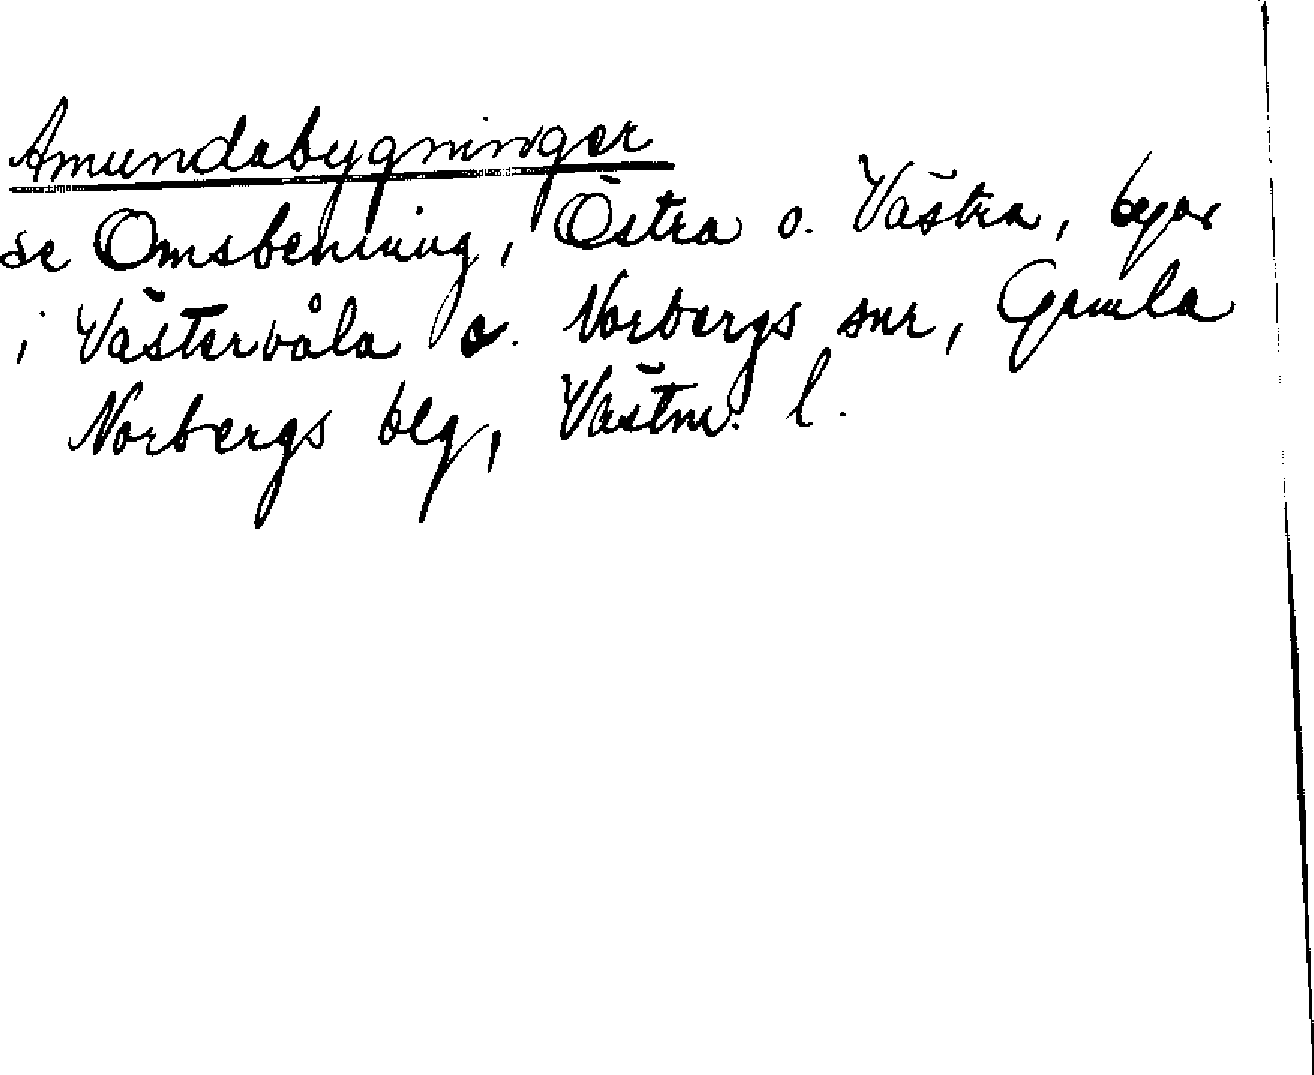 Amundabygninger
se Omsbenning, Östra o. Västra, byar
i Västervåla o. Norbergs snr, Gamla
Norbergs blg, Västm. l.